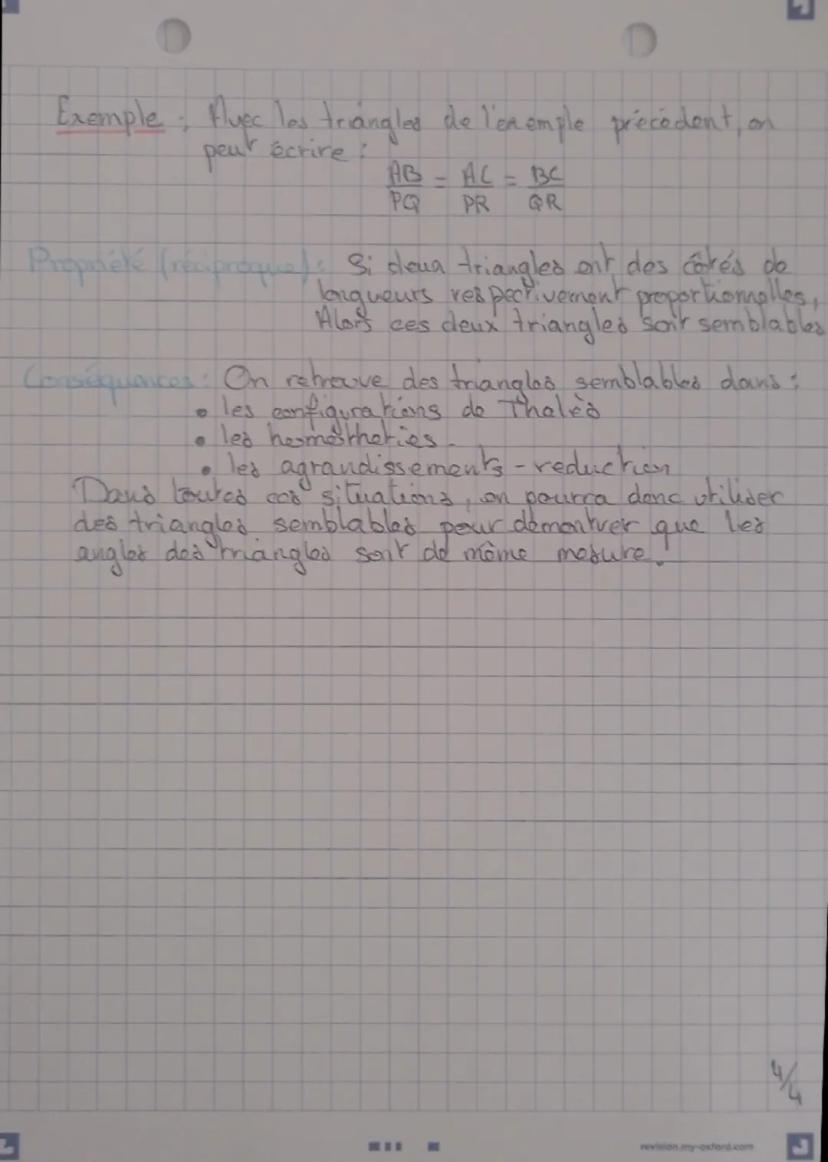 Exemple : Avec les triangles de l'exemple précédent, on
peut écrire :
AB/PQ = AC/PR = BC/QR
Propriété (réciproque) : Si deux triangles ont des côtés de
longueurs respectivement proportionnelles,
Alors ces deux triangles sont semblables
Conséquences : On retrouve des triangles semblables dans :
• les configurations de Thalès
• les homothéties.
• les agrandissements - reduction
Dans toutes ces situations, on pourra donc utiliser
des triangles semblables pour démontrer que les
angles des triangles sont de même mesure.
4/4
revision.my-oxford.com